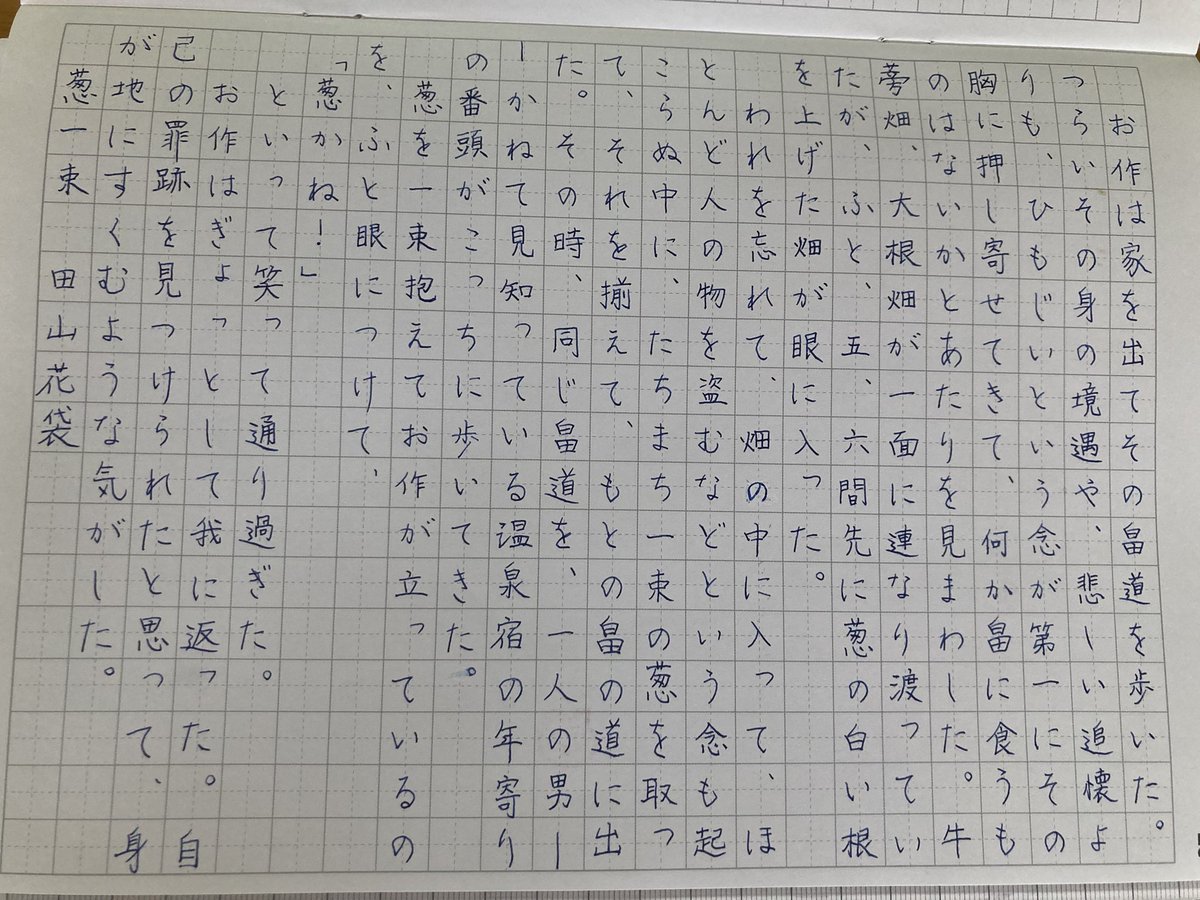 お作は家を出てその畠道を歩いた。
つらいその身の境遇や、悲しい追懐よ
りも、ひもじいという念が第一にその
胸に押し寄せてきて、何か畠に食うも
のはないかとあたりを見まわした。牛
蒡畑、大根畑が一面に連なり渡ってい
たが、ふと、五、六間先に葱の白い根
を上げた畑が眼に入った。
われを忘れて、畑の中に入って、ほ
とんど人の物を盗むなどという念も起
こらぬ中に、たちまち一束の葱を取っ
て、それを揃えて、もとの畠の道に出
た。その時、同じ畠道を、一人の男ー
ーかねて見知っている温泉宿の年寄り
の番頭がこっちに歩いてきた。
葱を一束抱えてお作が立っているの
を、ふと眼につけて、
「葱かね！」
といって笑って通り過ぎた。
お作はぎょっとして我に返った。自
己の罪跡を見つけられたと思って、身
が地にすくむような気がした。
葱一束　田山花袋